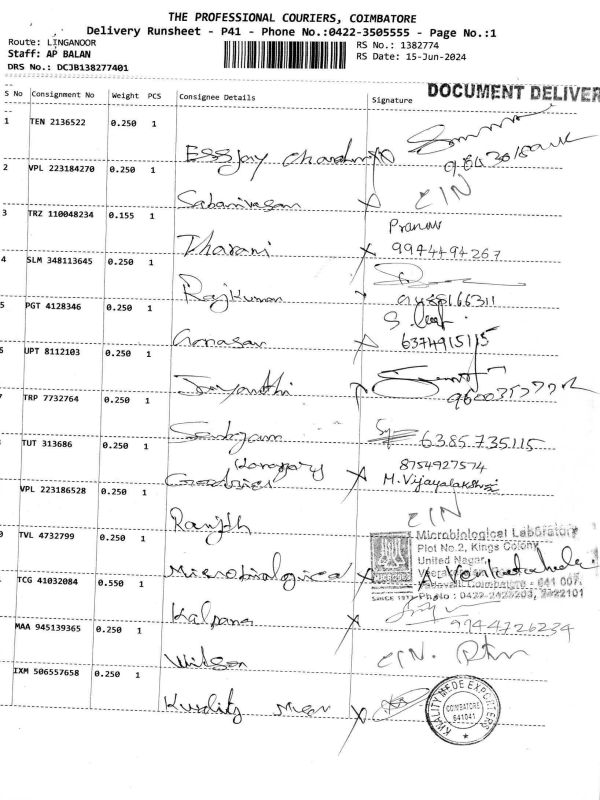 THE PROFESSIONAL COURIERS, COIMBATORE
Delivery Runsheet - P41 - Phone No.:0422-3505555 - Page No.:1
Route: LINGANOOR
Staff: AP BALAN
DRS No.: DCJB138277401
RS No.: 1382774
RS Date: 15-Jun-2024
DOCUMENT DELIVER
S No Consignment No Weight PCS Consignee Details Signature
1 TEN 2136522 0.250 1
Essjay
2 VPL 223184270 0.250 1
Sabarivasan
3 TRZ 110048234 0.155 1
Pranav
Tharani 9944494267
4 SLM 348113645 0.250 1
Rajkumar
5 PGT 4128346 0.250 1
6374915115
6 UPT 8112103 0.250 1
Jayanthi
7 TRP 7732764 0.250 1
6385735115
TUT 313686 0.250 1
8754927574
M. Vijayalakshmi
VPL 223186528 0.250 1
Ranjith
TVL 4732799 0.250 1
Microbiological Laboratory
Plot No.2, Kings Colony
United Nagar,
Coimbatore - 641 007.
SINCE
Microbiological
TCG 41032084 0.550 1
Kalpana 9944726234
MAA 945139365 0.250 1
Wilson
IXM 506557658 0.250 1
KWALITY MEDE EXPORTERS
COIMBATORE
641041